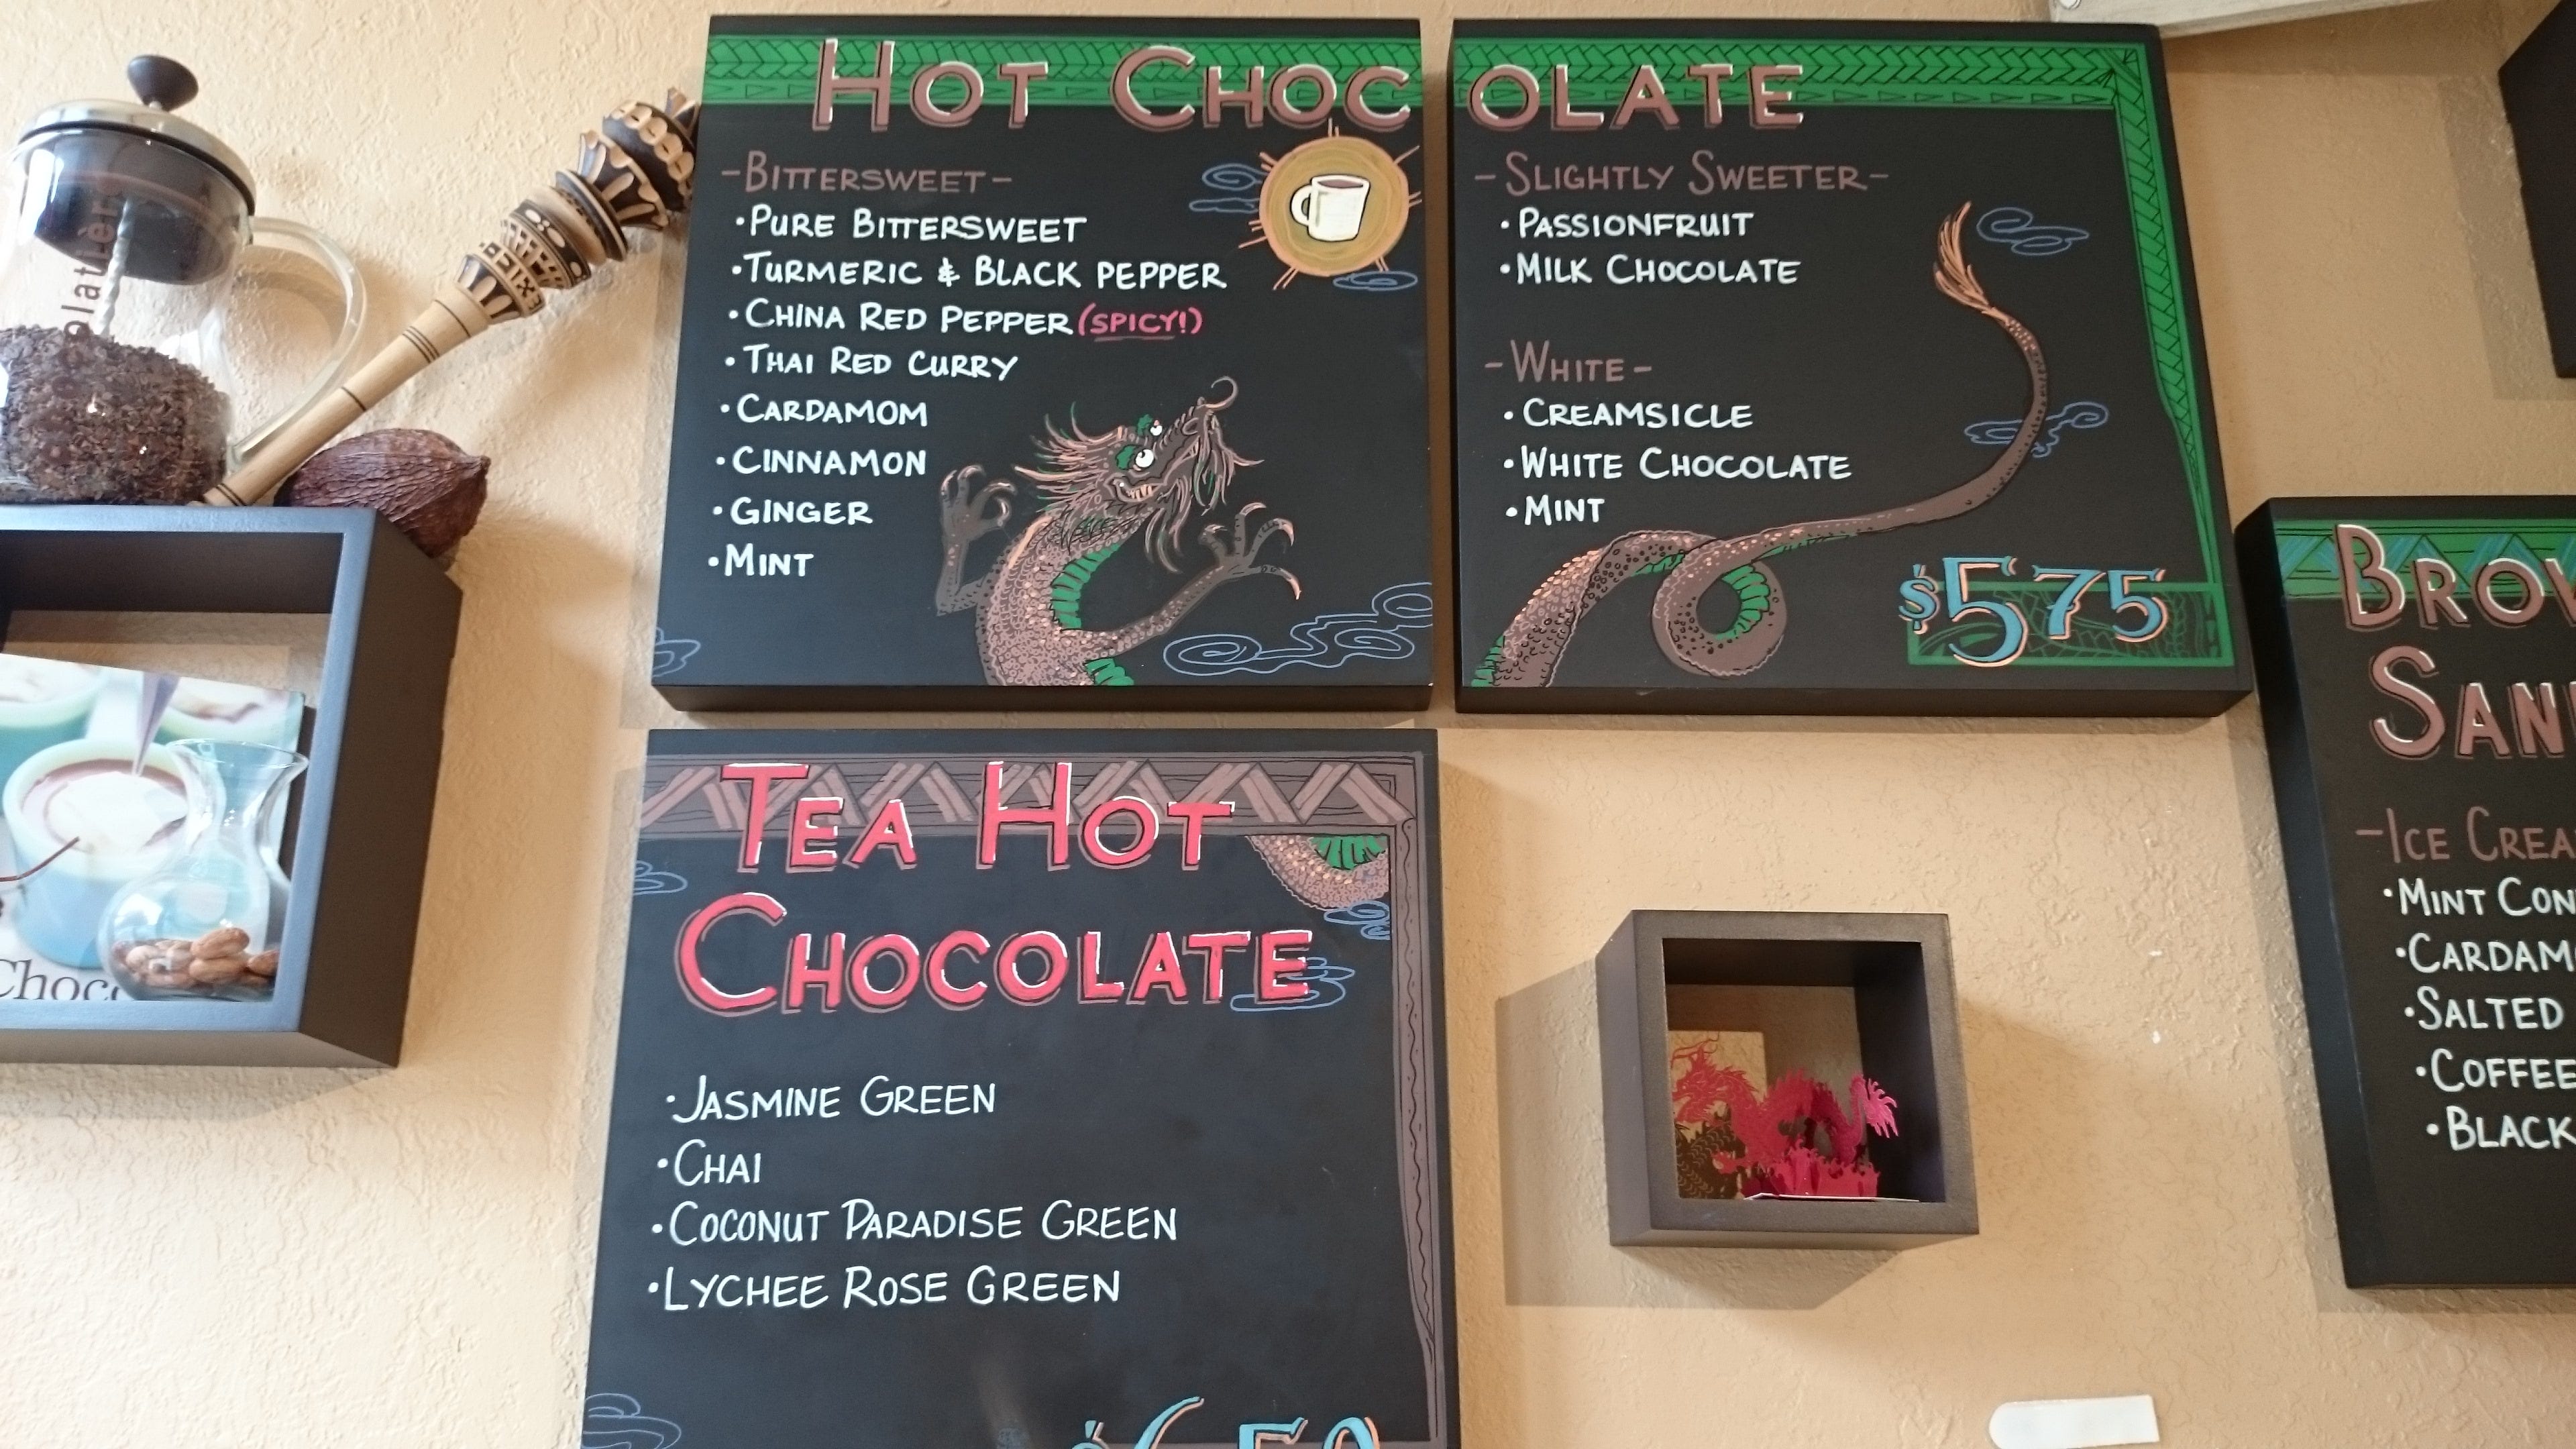 HOT CHOCOLATE
-BITTERSWEET-
•PURE BITTERSWEET
•TURMERIC & BLACK PEPPER
•CHINA RED PEPPER (SPICY!)
•THAI RED CURRY
•CARDAMOM
•CINNAMON
•GINGER
•MINT
-SLIGHTLY SWEETER-
•PASSIONFRUIT
•MILK CHOCOLATE
-WHITE-
•CREAMSICLE
•WHITE CHOCOLATE
•MINT
$575
TEA HOT
CHOCOLATE
•JASMINE GREEN
•CHAI
•COCONUT PARADISE GREEN
•LYCHEE ROSE GREEN
-ICE
•MINT
•SALTED
•COFFEE
•BLACK